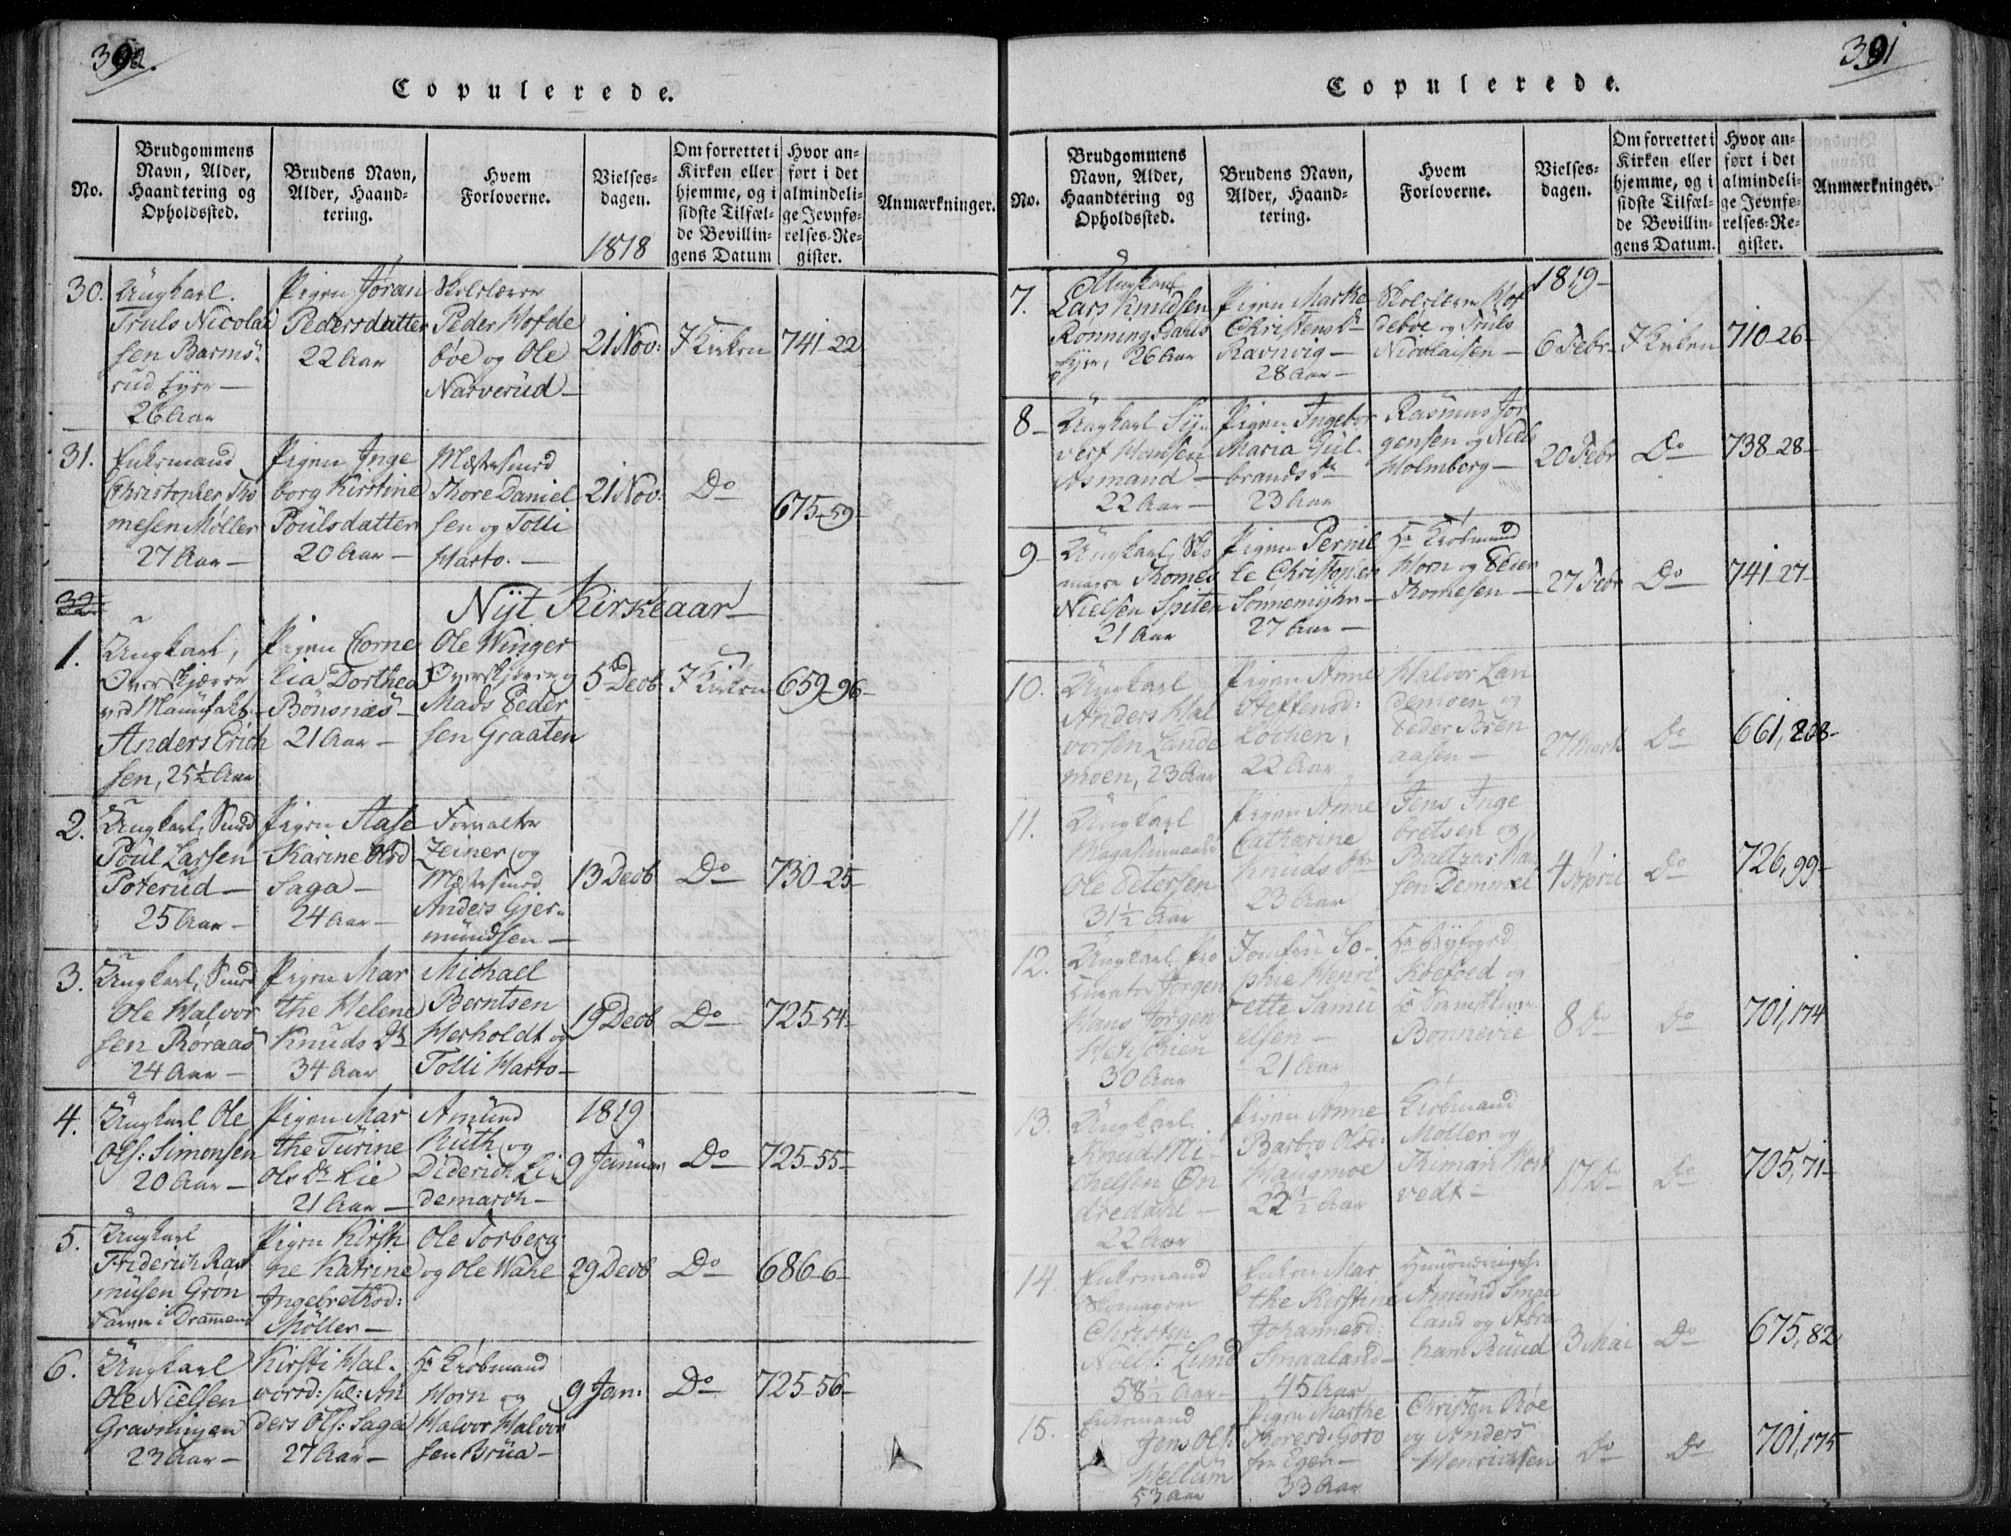 390.
Copulerede.
No.
Brudgommens
Navn, Alder,
Haandtering og
Opholdssted.
Brudens Navn,
Alder, Haand-
tering.
Hvem
Forloverne.
Vielses-
dagen.
1818
Om forrettet i
Kirken eller
hjemme, og i
sidste Tilfæl-
de Bevillin-
gens Datum
Hvor an-
ført i det
almindeli-
ge Jevnfø-
relses-Re-
gister.
Anmærkninger.
30.
Ungkarl.
Truls Nicolai
sen Barms-
rud Fyre —
26 Aar
Pigen Jøran
Pedersdatter
22 Aar
Skolelærer
Peder Hofde
bøe og Ole
Narverud —
21 Nov:
I Kirken
741-22
31.
Enkemand
Christopher Tho
mesen Møller
27 Aar —
Pigen Inge
borg Kirstine
Poulsdatter
20 Aar —
Mestersmed
Thore Daniel
sen og Tolli
Harto. —
21 Nov:
Do
675-59-
32
Nyt Kirkeaar
1.
Ungkarl,
Overskjærer
ved Manufakt:
Anders Erich
sen, 25½ Aar
Pigen Corne
lia Dorthea
Bönsnæs —
21 Aar —
Ole Winger
Overskjærer og
Mads Peder
sen Graaten
5 Decb
I Kirken
659-96-
2.
Ungkarl, Smed
Poul Larsen
Poterud —
25 Aar —
Pigen Aase
Karine Olsd
Saga —
24 Aar —
Forvalter
Zeiner og
Mestersmed
Anders Gjer-
mundsen —
13 Decb
Do
730-25-
3.
Ungkarl, Smed
Ole Halvor
sen Røraas
24 Aar —
Pigen Mar
the Helene
Knuds Dr
34 Aar
Michael
Berntsen
Herholdt og
Tolli Harto —
19 Decb
Do
725-54-
4.
Ungkarl Ole
Ols: Simonsen
20 Aar —
Pigen Mar
the Turine
Ols Dr Lie
21 Aar —
Amund
Ruth og
Diderich Li
demarch —
1819
9 Januar
Do
725-55-
5.
Ungkarl
Friderich Ras
musen Grøn
Farver i Drammen
Pigen Kirsti
ne Katrine
Ingebrethsd:
Møller —
Ole Torberg
og Ole Wahe
29 Decb
Do
686-6-
6.
Ungkarl
Ole Nielsen
Gravningen
23 Aar —
Kirsti Hal-
vorsd: An
ders Ols: Saga
27 Aar —
Hr Kiøbmand
Horn og
Halvor Halvor
sen Brua —
9 Jan:
Do
725-56-
391
Copulerede.
No.
Brudgommens
Navn, Alder,
Haandtering og
Opholdssted.
Brudens Navn,
Alder, Haand-
tering.
Hvem
Forloverne.
Vielses-
dagen.
Om forrettet i
Kirken eller
hjemme, og i
sidste Tilfæl-
de Bevillin-
gens Datum.
Hvor an-
ført i det
almindeli-
ge Jevnfø-
relses-Re-
gister.
Anmærkninger.
7.
Ungkarl
Lars Knudsen
Ronning
Fyre, 26 Aar
Pigen Marthe
Christens Dr
Ravnvig —
28 Aar —
Skolelærer Hof
debøe og Truls
Nicolaisen —
1819-
6 Febr-
I Kirken
710-26-
8-
Ungkarl Sy-
vert Hansen
Aasmand —
22 Aar —
Pigen Ingebor
Maria Gul-
brands Dr
23 Aar
Rasmus Jør
gensen og Niels
Holmberg —
20 Febr
Do
738-28-
9-
Ungkarl, Sko
mager Thomes
Nielsen Spiten
21 Aar
Pigen Pernil
le Christophers
Sønnemyhr —
27 Aar —
Hr Kiøbmand
Horn og Peder
Thomesen —
27 Febr
Do
741-27-
10.
Ungkarl
Anders Hal
vorsen Lande
moen, 23 Aar
Pigen Anne
Steffensd:
Lochen,
22 Aar
Halvor Lan
demoen og
Peder Bren
aasen —
27 Marts
Do
661,208-
11.
Ungkarl
Ole Petersen
31½ Aar
Pigen Anne
Catharine
Knuds Dtr
23 Aar
Jens Inge
bretsen og
Baltzar Han
sen Demmel
4 April
Do
726,99-
12.
Ungkarl Pro
curator Jørgen
Hans Jørgen
30 Aar
Jomfru So-
phie Henri
ette Samu
elsen —
21 Aar
Hr Byfoged
Koefoed og
Bonnevie
8 Do
Do
701,174
13.
Ungkarl.
Knud Mi-
chelsen
22 Aar
Pigen Anne
Barbro Olsd:
Haugmoe
22½ Aar
Kiøbmand
Møller og
vedt —
17 Do
Do
705,71-
14
Enkemand
Skomager
Christen
Niels: Lund
58½ Aar —
Enken Mar
the Kirstine
Johannesd:
Smaaland —
45 Aar
Amund Smaa
land og Abra
ham Ruud
3 Mai
Do
675,82
15.
Enkemand
Jens Ols:
Hellum
53 Aar
Pigen Marthe
Thoresd: Goro
fra Eger —
33 Aar
Christen Røe
og Anders
Henrichsen
Do
Do
701,175